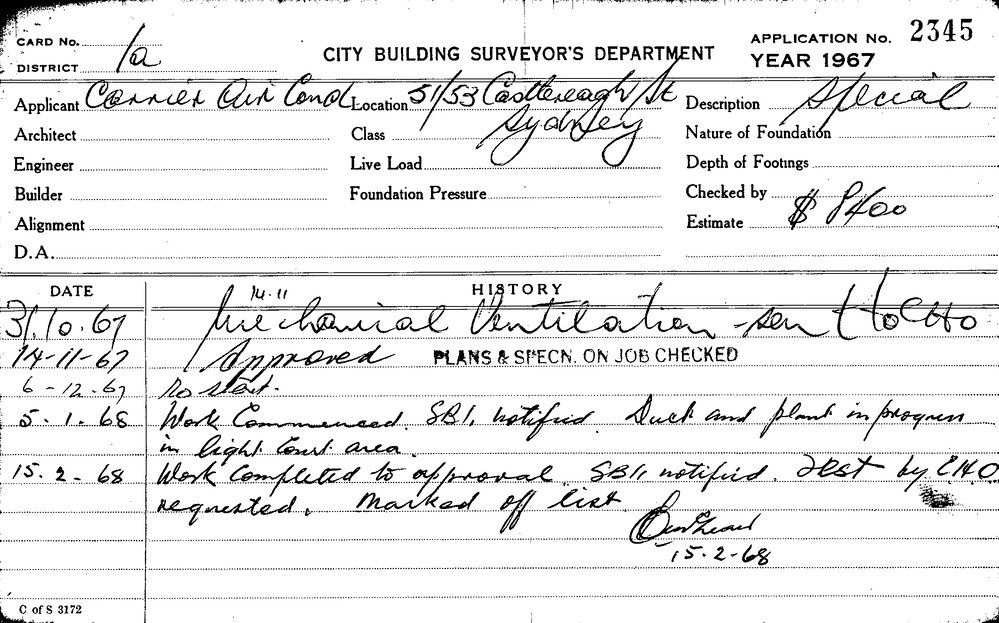 CARD No. APPLICATION No. 2345
DISTRICT 1a CITY BUILDING SURVEYOR'S DEPARTMENT YEAR 1967
Applicant Carrier Air Cond Location 51/53 Castlereagh St Description Special
Architect Class Sydney Nature of Foundation
Engineer Live Load Depth of Footings
Builder Foundation Pressure Checked by
Alignment Estimate $ 8400
D.A.
DATE HISTORY
14.11
31.10.67 Mechanical Ventilation - sen to CHO
14-11-67 Approved PLANS & SPECN. ON JOB CHECKED
6-12-67 No start.
5.1.68 Work Commenced. SBI. notified. Duct and plant in progress
in light court area.
15.2.68 Work Completed to approval. SBI. notified. Test by C.H.O.
requested. Marked off list.
15-2-68
C of S 3172